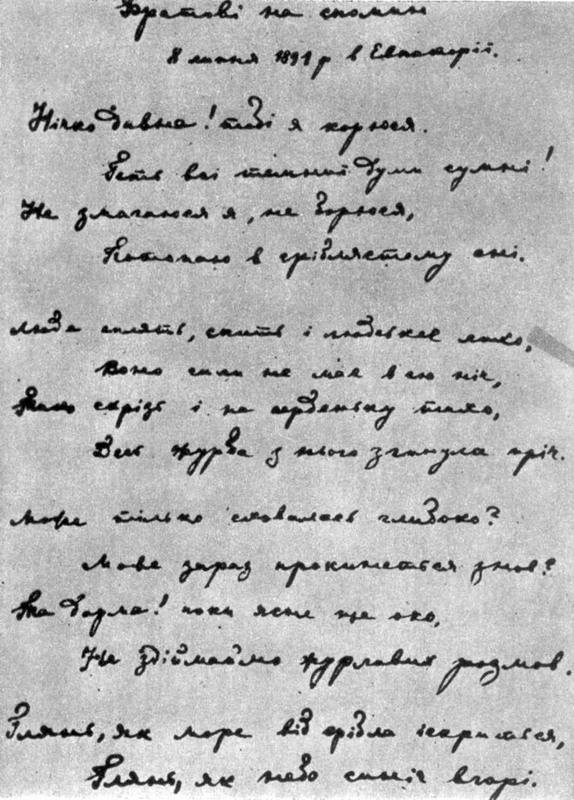 Братові на спомин
8 липня 1891 р в Евпаторії.
Нічко дивна! тобі я корюся.
Геть всі темниї думи сумні!
Не змагаюся я, не борюся,
Потопаю в сріблястому сні.
Люде сплять, спить і людськеє лихо,
Воно сили не має в сю ніч,
Тихо скрізь і на серденьку тихо,
Десь журба з нього згинула пріч.
Може тільки сховалась глибоко?
Може зараз прокинеться знов?
Та дарма! поки ясне ще око,
Не здіймаймо журливих розмов.
Глянь, як море від срібла іскриться,
Глянь, як небо синіє вгорі.